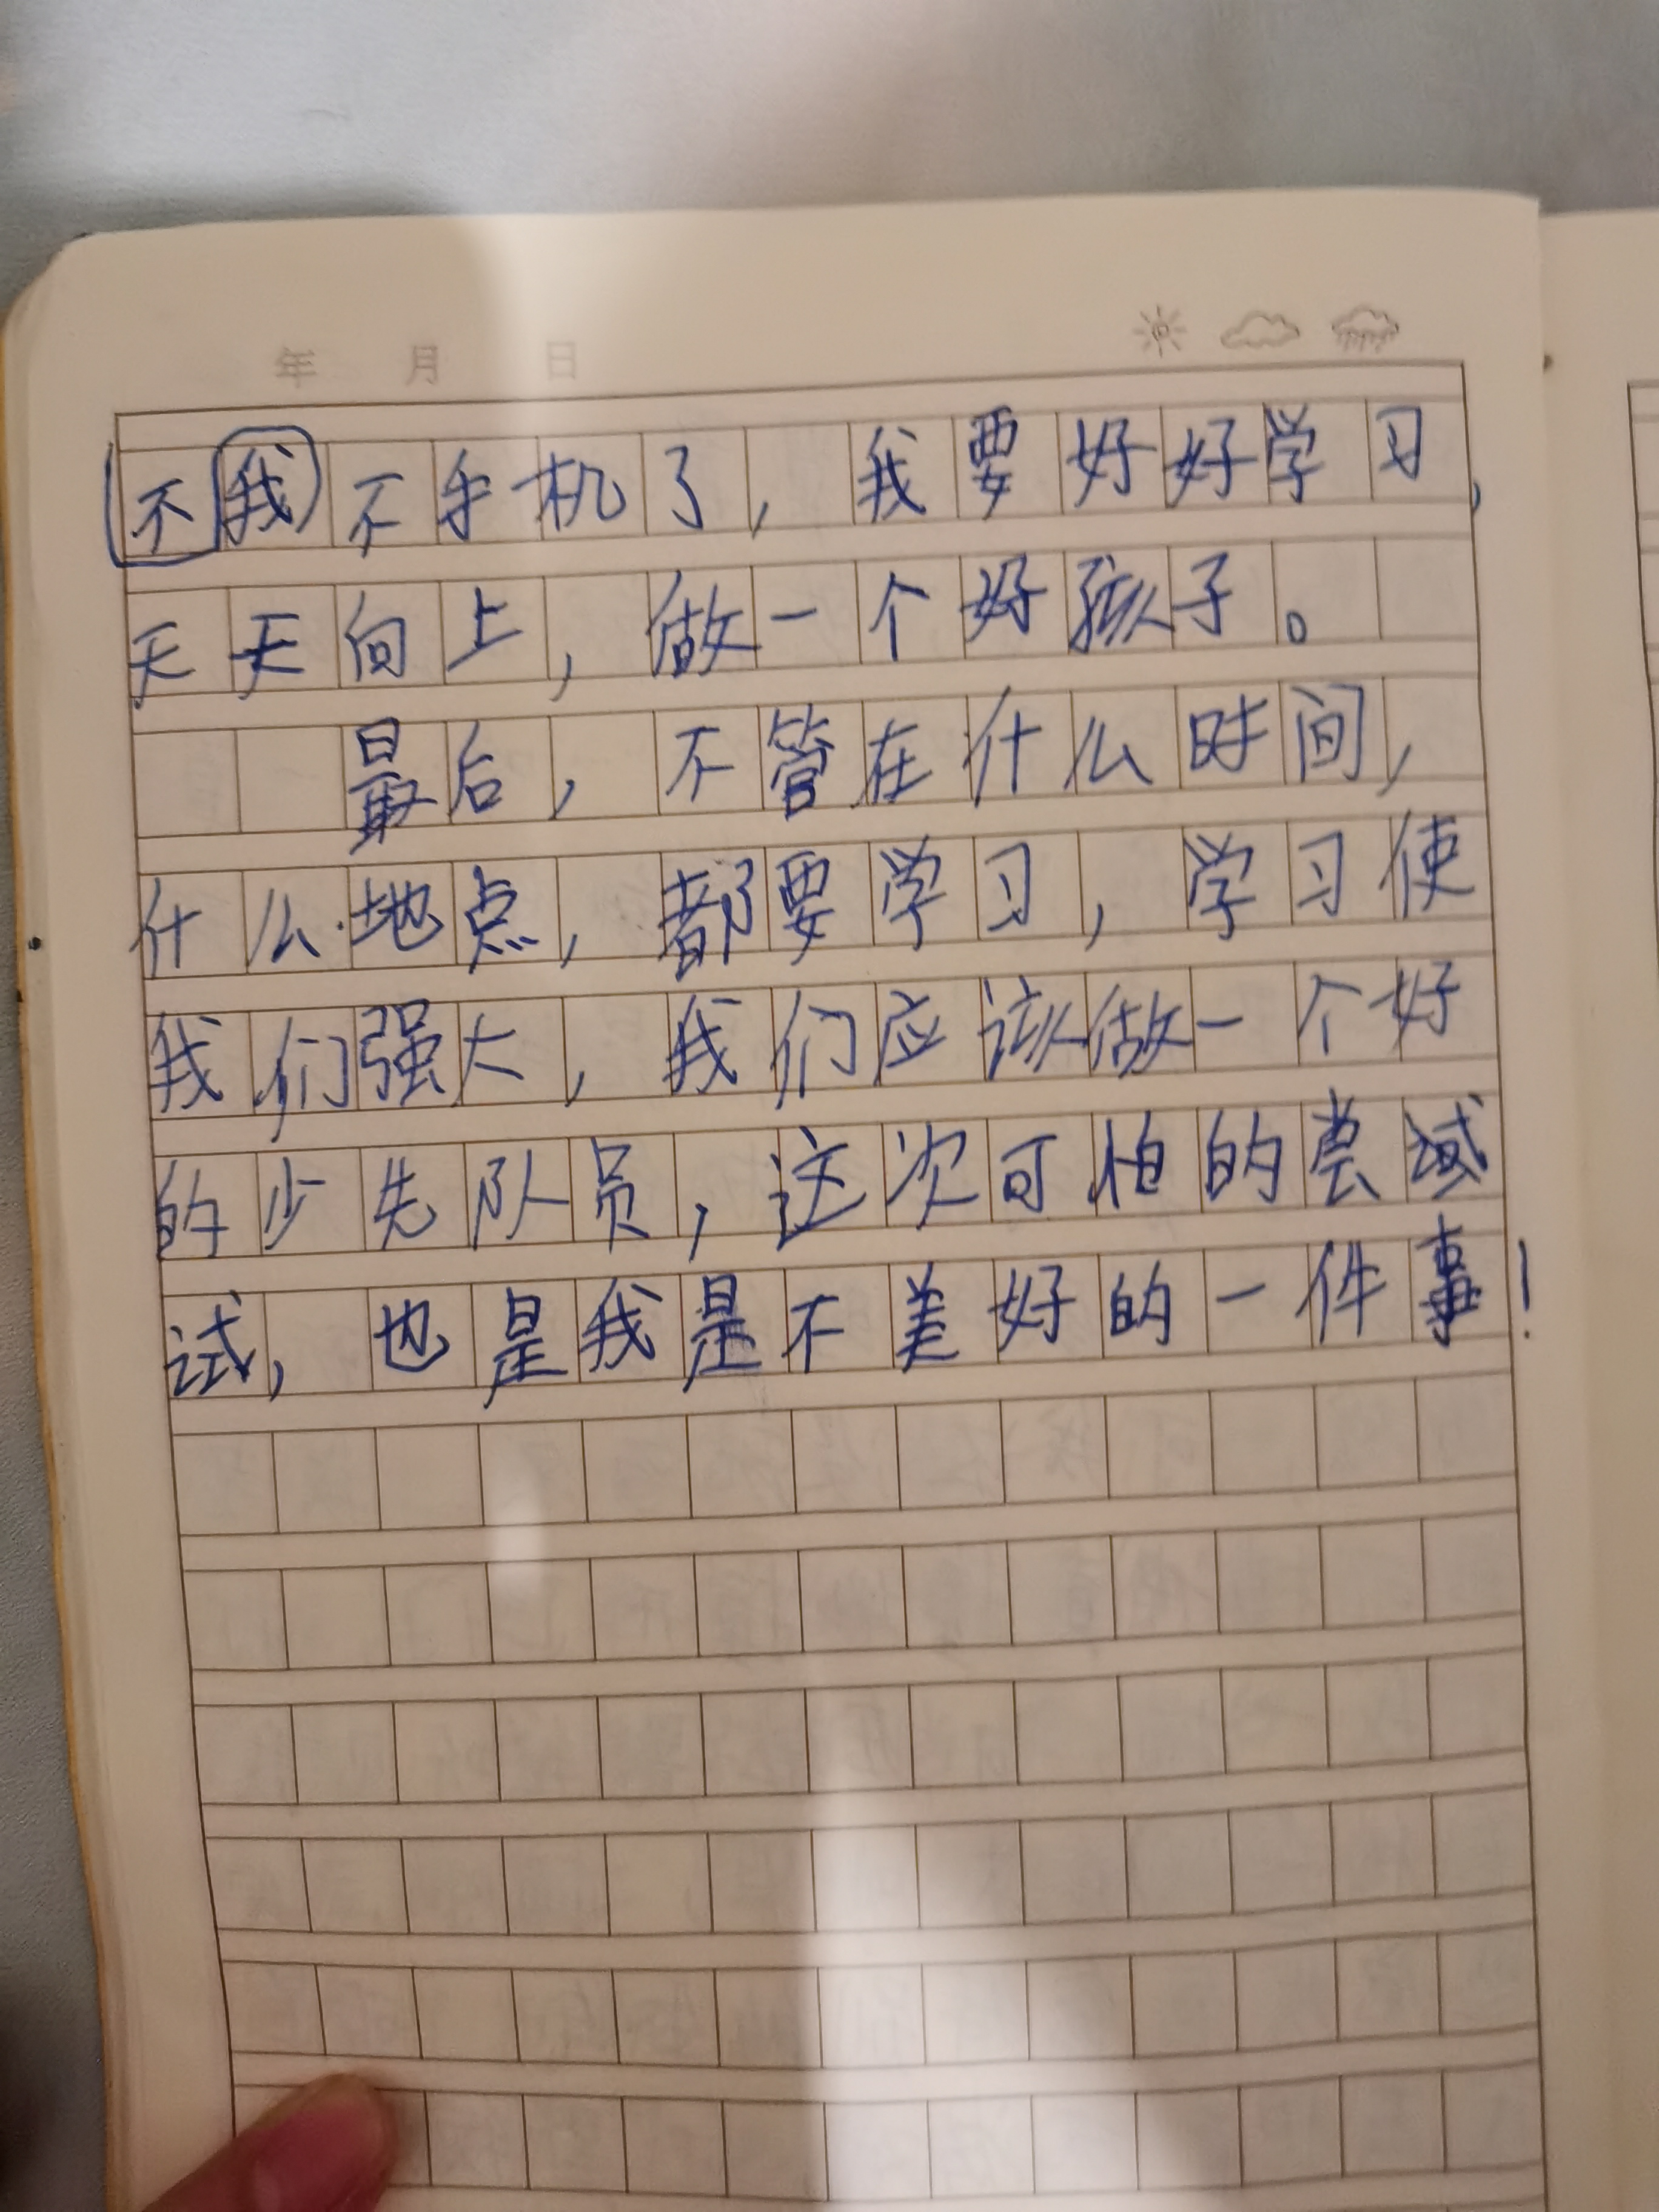 年 月 日
不我不手机了，我要好好学习，
天天向上，做一个好孩子。
最后，不管在什么时间，
什么地点，都要学习，学习使
我们强大，我们应该做一个好
的少先队员，这次可怕的尝
试，也是我是不美好的一件事！